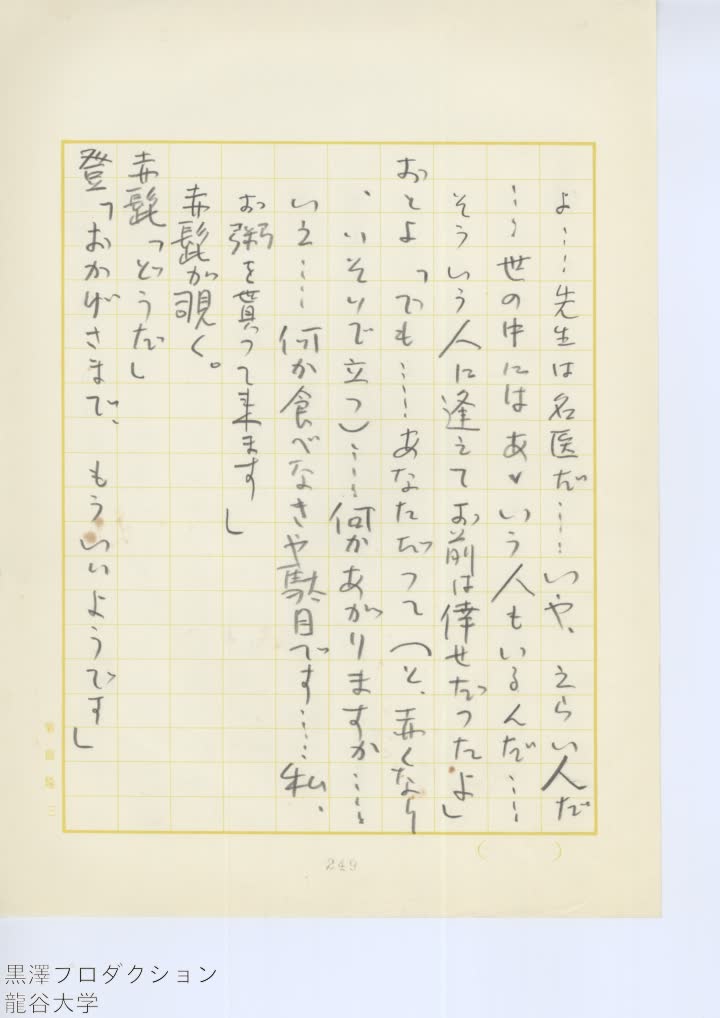 よ……先生は名医だ……いや、えらい人だ
……世の中にはあゝいう人もいるんだ……
そういう人に逢えてお前は倖せだったよ」
おとよ「でも……あなただって（と、赤くなり
、いそいで立つ）……何かあがりますか……
いえ……何か食べなきゃ駄目です……私、
お粥を貰って来ます」
赤髭が覗く。
赤髭「どうだ」
登「おかげさまで、もういいようです」
249
黒澤プロダクション
龍谷大学